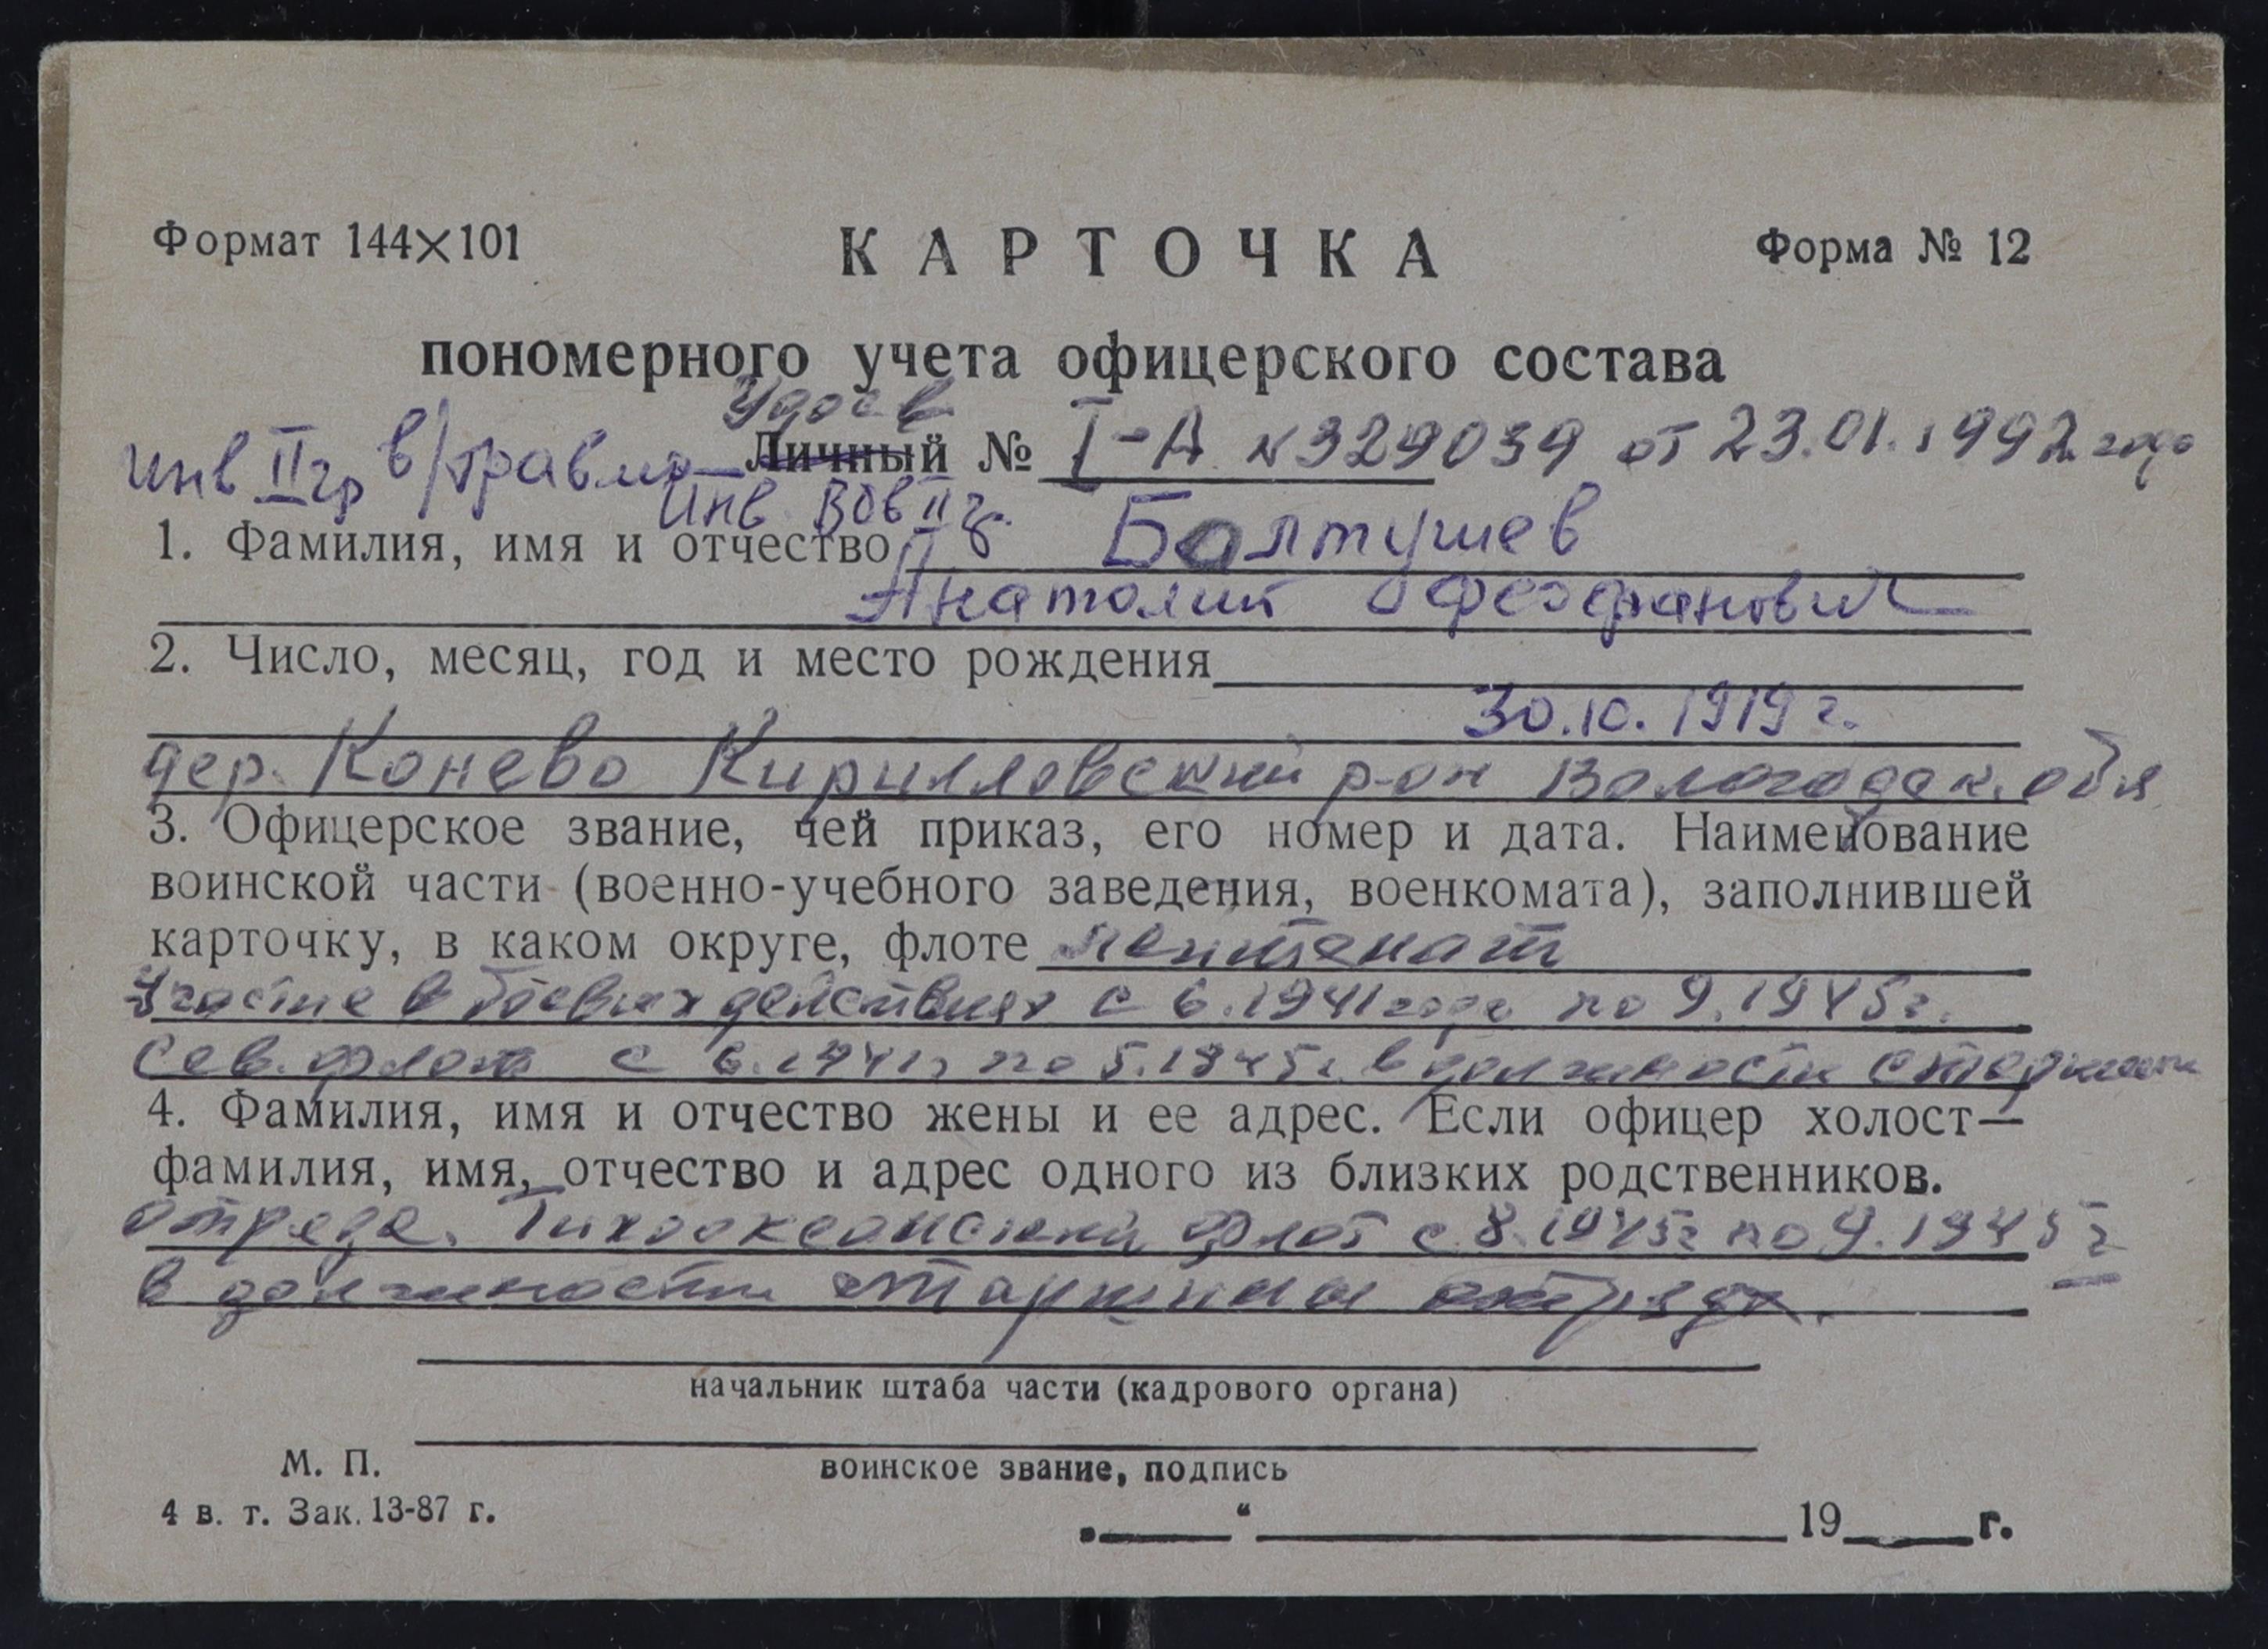 Формат 144×101 КАРТОЧКА Форма № 12
пономерного учета офицерского состава
Удос в
инв II гр в/травма Личный № I-А № 329039 от 23.01.1992 года
Инв. ВОВ II г.
1. Фамилия, имя и отчество Болтушев
Анатолий Феофанович
2. Число, месяц, год и место рождения
30.10.1919 г.
дер. Конево Кирилловский р-он Вологодск. обл
3. Офицерское звание, чей приказ, его номер и дата. Наименование
воинской части (военно-учебного заведения, военкомата), заполнившей
карточку, в каком округе, флоте лейтенант
Участие в боевых действиях с 6.1941 года по 9.1945 г.
Сев. флот с 6.1941 г по 5.1945 г. в должности старшины
4. Фамилия, имя и отчество жены и ее адрес. Если офицер холост—
фамилия, имя, отчество и адрес одного из близких родственников.
отряда. Тихоокеанский флот с 8.1945 г по 9.1945 г
в должности старшины отряда.
начальник штаба части (кадрового органа)
М. П.
воинское звание, подпись
4 в. т. Зак. 13-87 г.
„ “ 19 г.